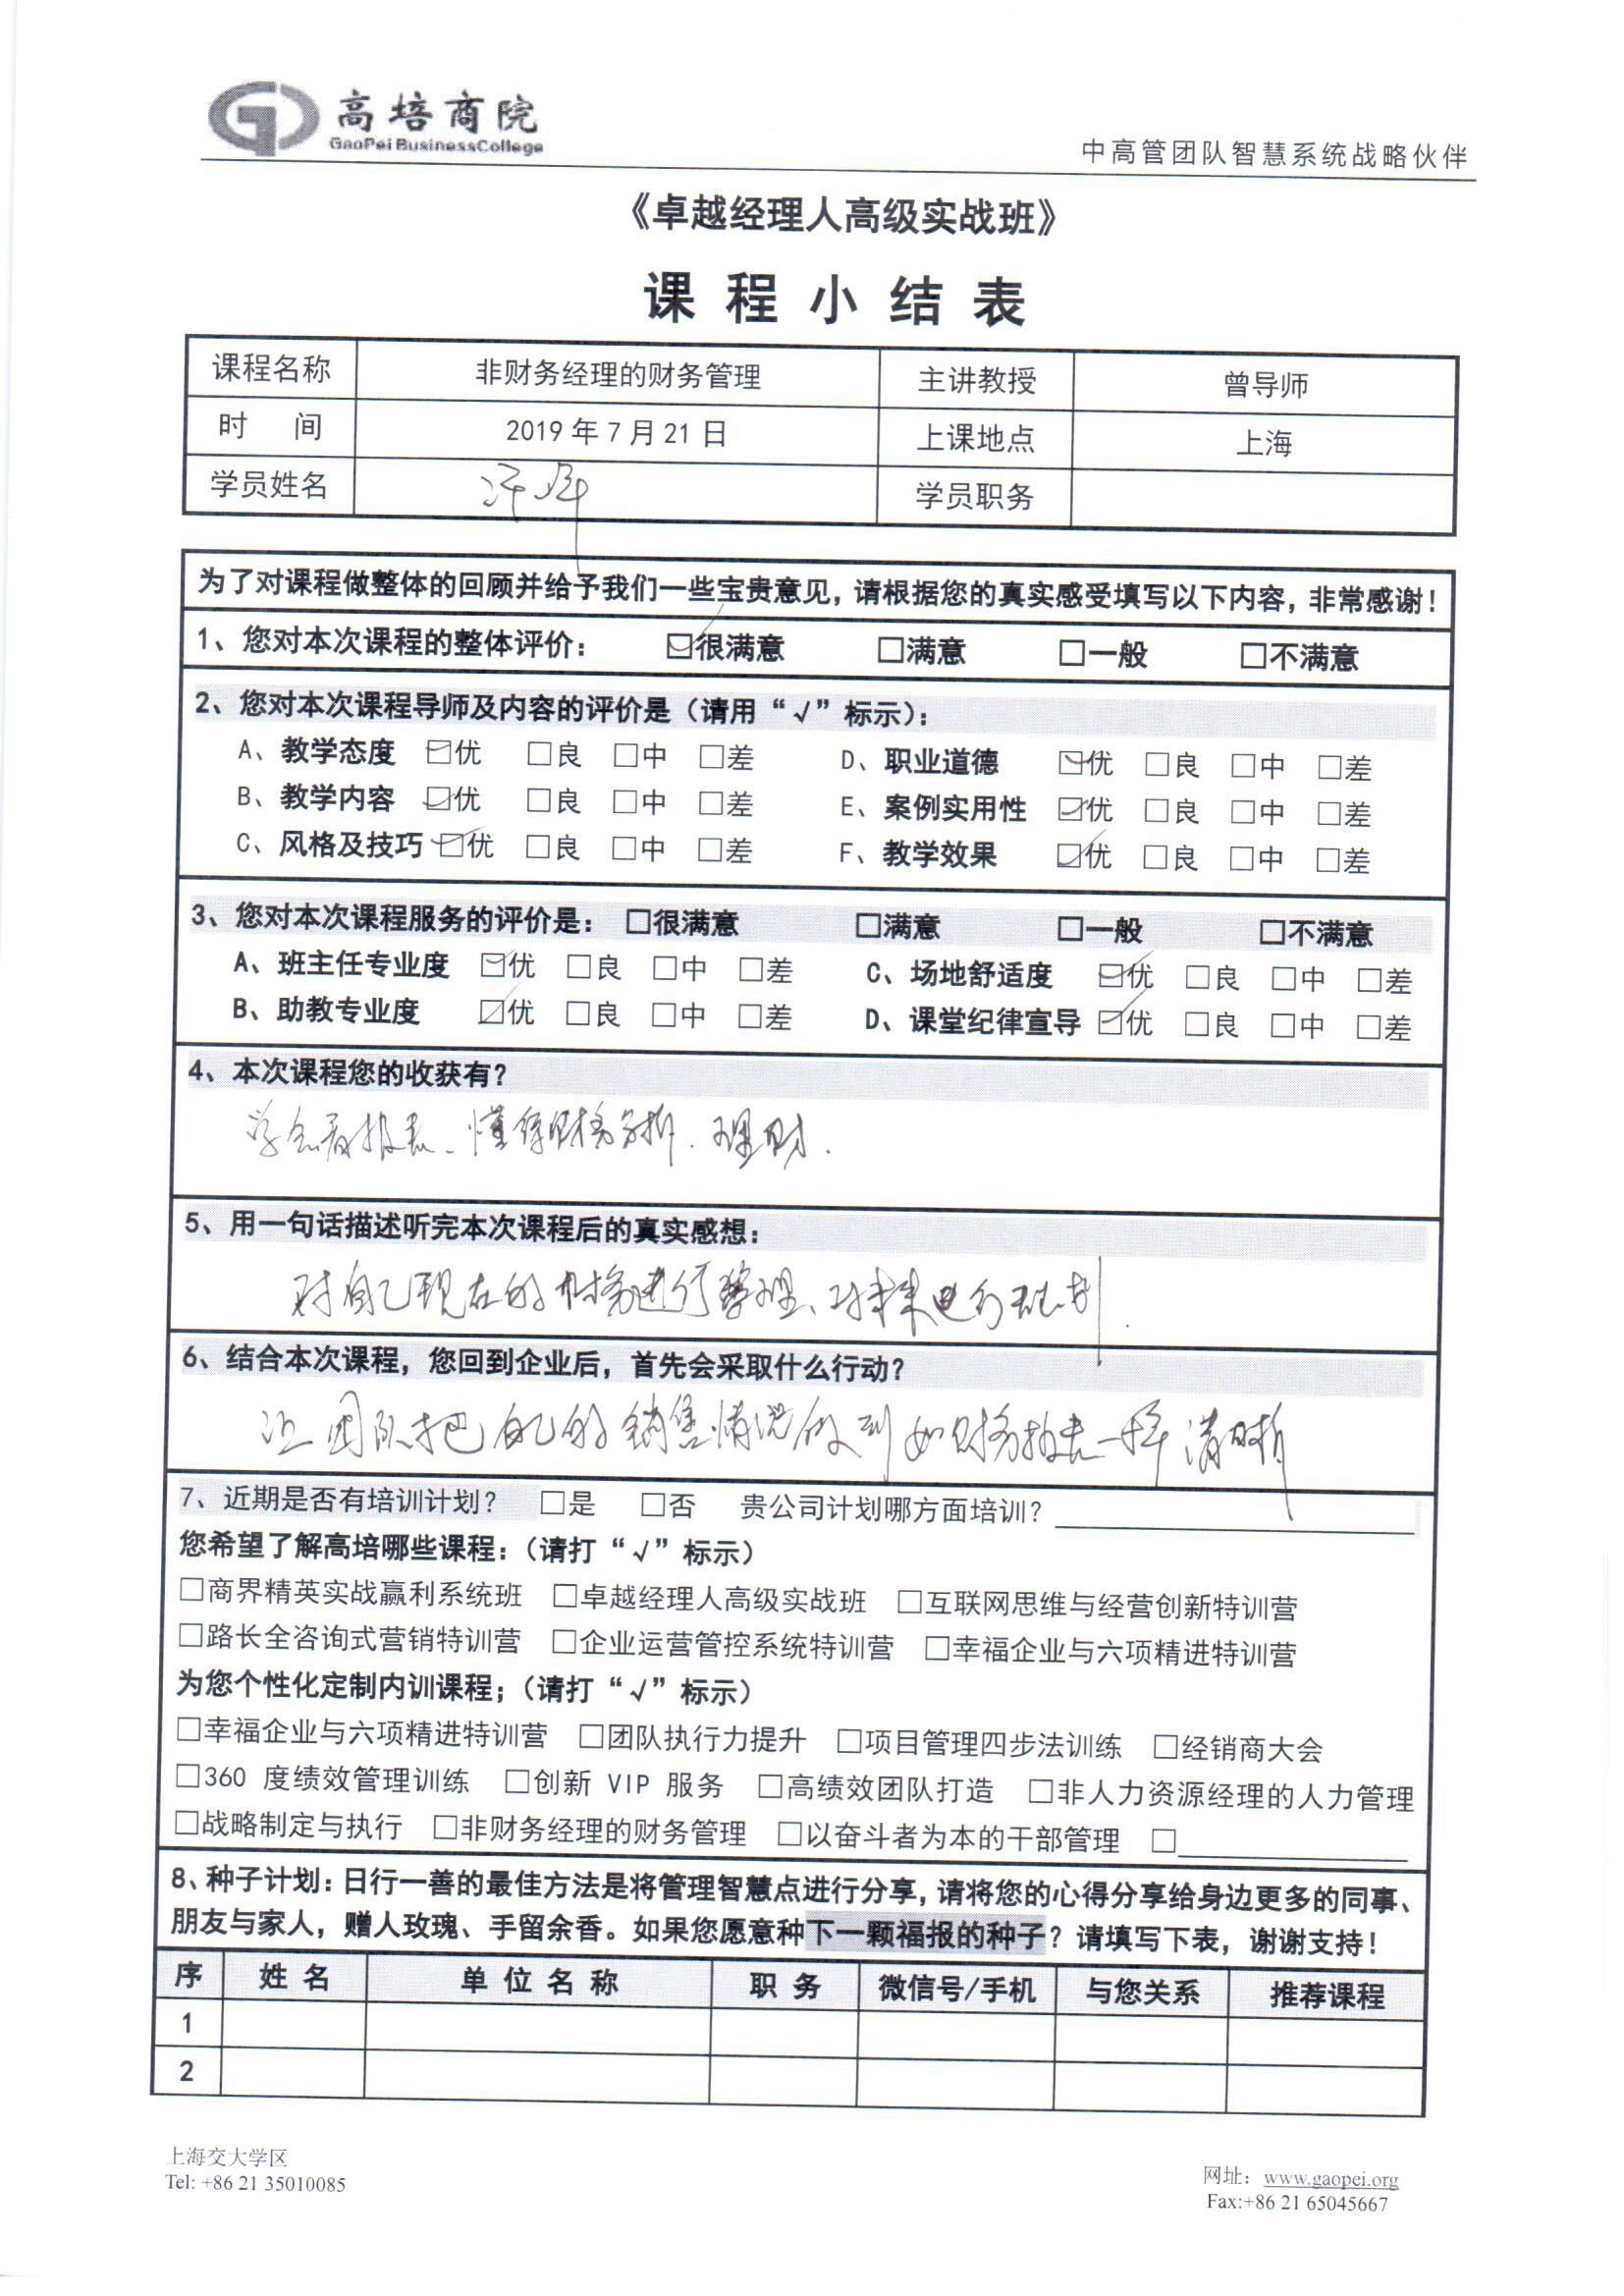 高培商院
GaoPei BusinessCollege
中高管团队智慧系统战略伙伴
《卓越经理人高级实战班》
课程小结表
课程名称 非财务经理的财务管理 主讲教授 曾导师
时 间 2019 年 7 月 21 日 上课地点 上海
学员姓名 学员职务
为了对课程做整体的回顾并给予我们一些宝贵意见，请根据您的真实感受填写以下内容，非常感谢！
1、您对本次课程的整体评价： ☑很满意 □满意 □一般 □不满意
2、您对本次课程导师及内容的评价是（请用“√”标示）：
A、教学态度 ☑优 □良 □中 □差 D、职业道德 ☑优 □良 □中 □差
B、教学内容 ☑优 □良 □中 □差 E、案例实用性 ☑优 □良 □中 □差
C、风格及技巧 ☑优 □良 □中 □差 F、教学效果 ☑优 □良 □中 □差
3、您对本次课程服务的评价是： □很满意 □满意 □一般 □不满意
A、班主任专业度 ☑优 □良 □中 □差 C、场地舒适度 ☑优 □良 □中 □差
B、助教专业度 ☑优 □良 □中 □差 D、课堂纪律宣导 ☑优 □良 □中 □差
4、本次课程您的收获有？
学会看报表、懂得财务分析．理财．
5、用一句话描述听完本次课程后的真实感想：
对自己现在的财务进行整理、对未来进行规划．
6、结合本次课程，您回到企业后，首先会采取什么行动？
让团队把自己的销售情况做到如财务报表一样清晰
7、近期是否有培训计划？ □是 □否 贵公司计划哪方面培训？
您希望了解高培哪些课程：（请打“√”标示）
□商界精英实战赢利系统班 □卓越经理人高级实战班 □互联网思维与经营创新特训营
□路长全咨询式营销特训营 □企业运营管控系统特训营 □幸福企业与六项精进特训营
为您个性化定制内训课程；（请打“√”标示）
□幸福企业与六项精进特训营 □团队执行力提升 □项目管理四步法训练 □经销商大会
□360 度绩效管理训练 □创新 VIP 服务 □高绩效团队打造 □非人力资源经理的人力管理
□战略制定与执行 □非财务经理的财务管理 □以奋斗者为本的干部管理 □
8、种子计划：日行一善的最佳方法是将管理智慧点进行分享，请将您的心得分享给身边更多的同事、
朋友与家人，赠人玫瑰、手留余香。如果您愿意种下一颗福报的种子？请填写下表，谢谢支持！
序 姓名 单位名称 职务 微信号/手机 与您关系 推荐课程
1
2
上海交大学区
Tel: +86 21 35010085
网址：www.gaopei.org
Fax:+86 21 65045667